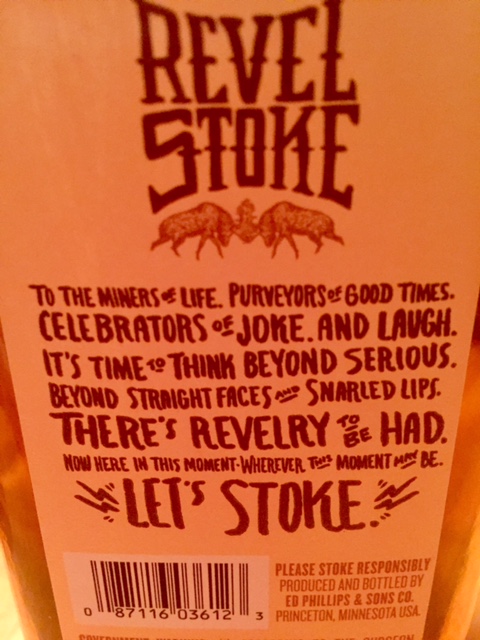 REVEL
STOKE
TO THE MINERS OF LIFE. PURVEYORS OF GOOD TIMES.
CELEBRATORS OF JOKE. AND LAUGH.
IT'S TIME TO THINK BEYOND SERIOUS.
BEYOND STRAIGHT FACES AND SNARLED LIPS.
THERE'S REVELRY TO BE HAD.
NOW HERE IN THIS MOMENT-WHEREVER THIS MOMENT MAY BE.
LET'S STOKE.
PLEASE STOKE RESPONSIBLY
PRODUCED AND BOTTLED BY
ED PHILLIPS & SONS CO.
PRINCETON, MINNESOTA USA.
0 87116 03612 3